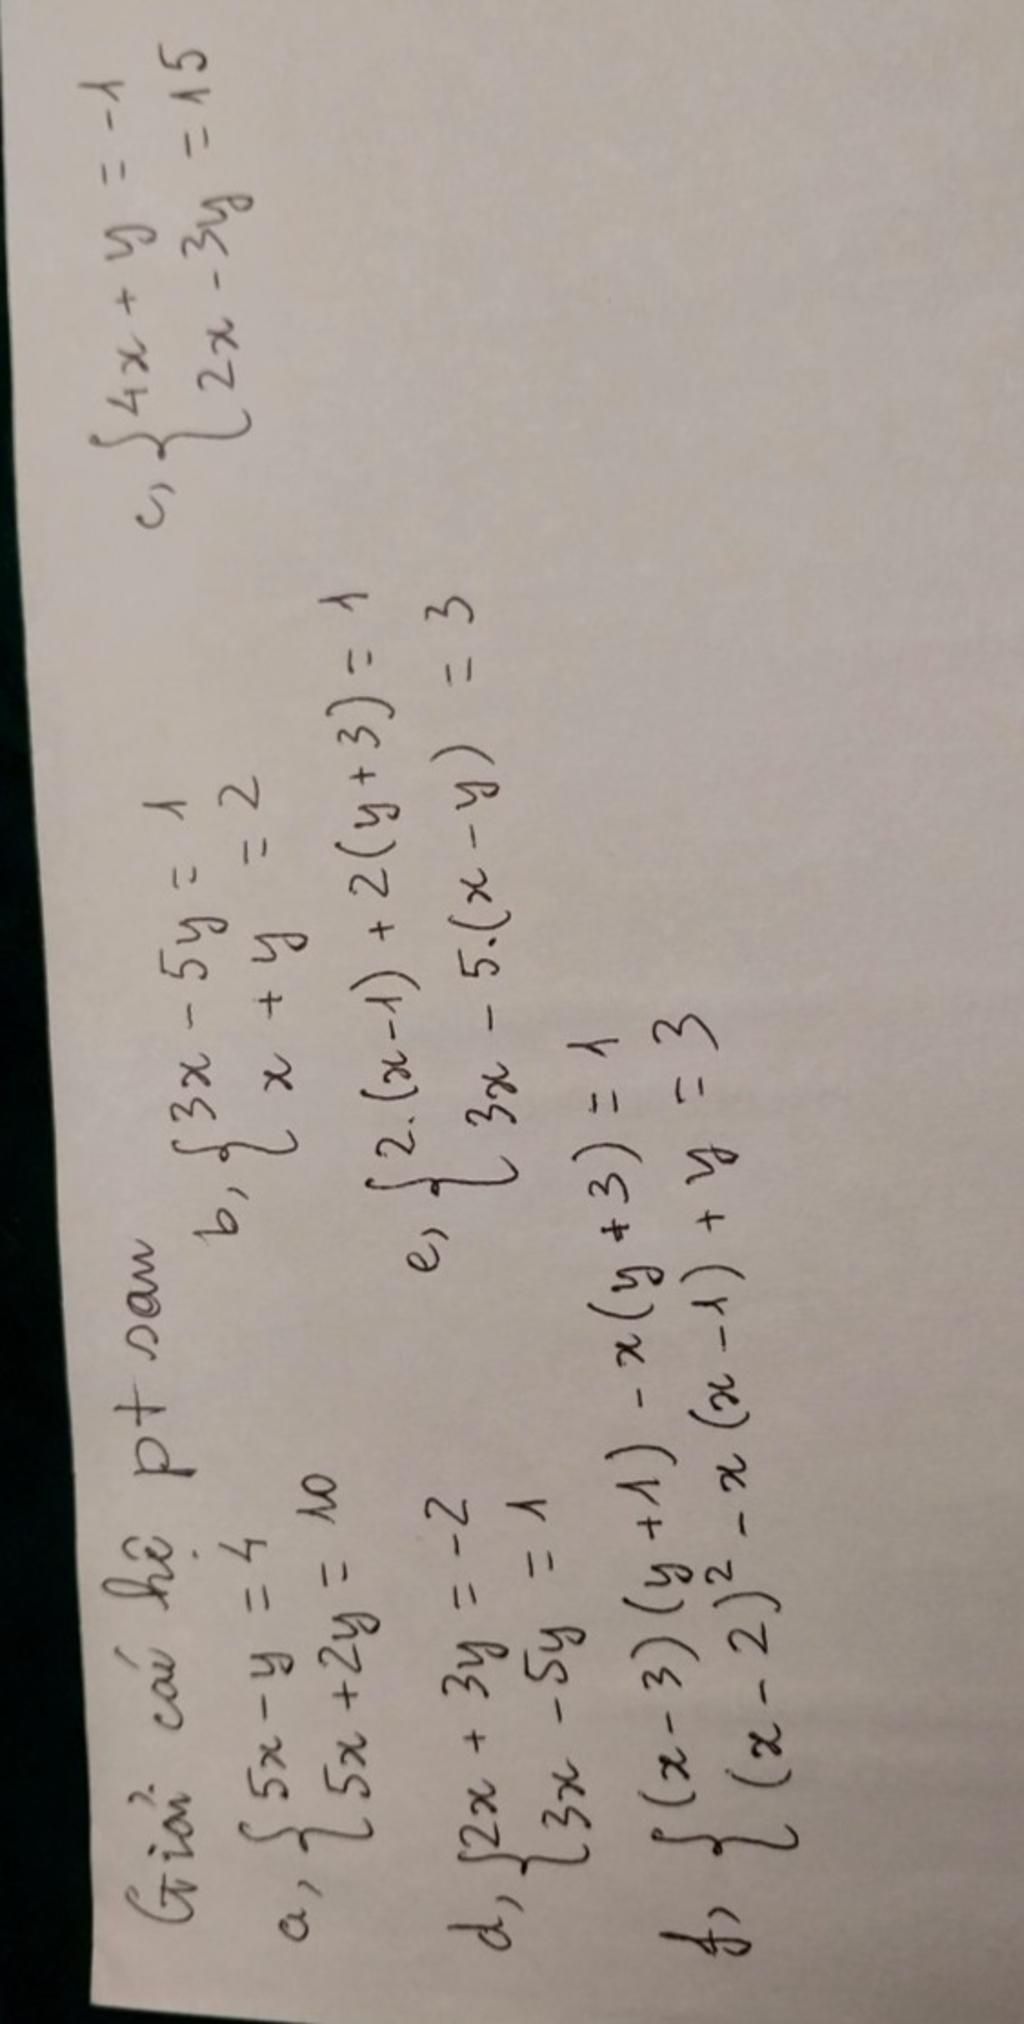 Giải các hệ pt sau
a, { 5x - y = 4
5x + 2y = 10
b, { 3x - 5y = 1
x + y = 2
c, { 4x + y = -1
2x - 3y = 15
d, { 2x + 3y = -2
3x - 5y = 1
e, { 2.(x-1) + 2(y+3) = 1
3x - 5.(x - y) = 3
f, { (x-3)(y+1) - x(y+3) = 1
(x-2)² - x(x-1) + y = 3